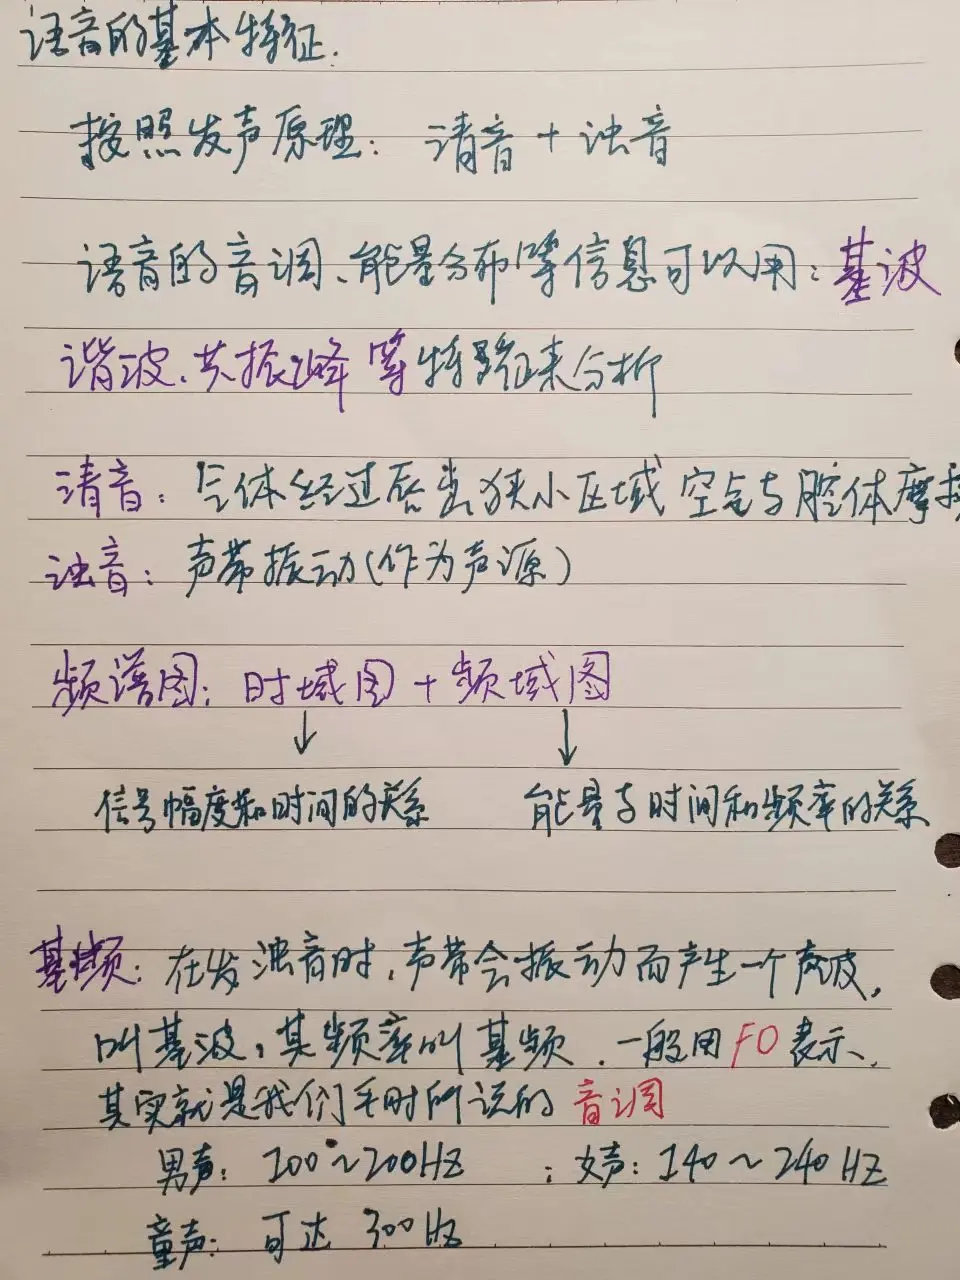 语音的基本特征.
按照发声原理: 清音 + 浊音
语音的音调、能量分布等信息可以用: 基波
谐波、共振峰等特征来分析
清音: 气体经过唇齿狭小区域 空气与腔体摩擦
浊音: 声带振动(作为声源)
频谱图: 时域图 + 频域图
↓ ↓
信号幅度和时间的关系 能量与时间和频率的关系
基频: 在发浊音时, 声带会振动而产生一个声波,
叫基波, 其频率叫基频. 一般用F0表示、
其实就是我们平时所说的音调
男声: 100~200HZ ; 女声: 140~240HZ
童声: 可达 300HZ